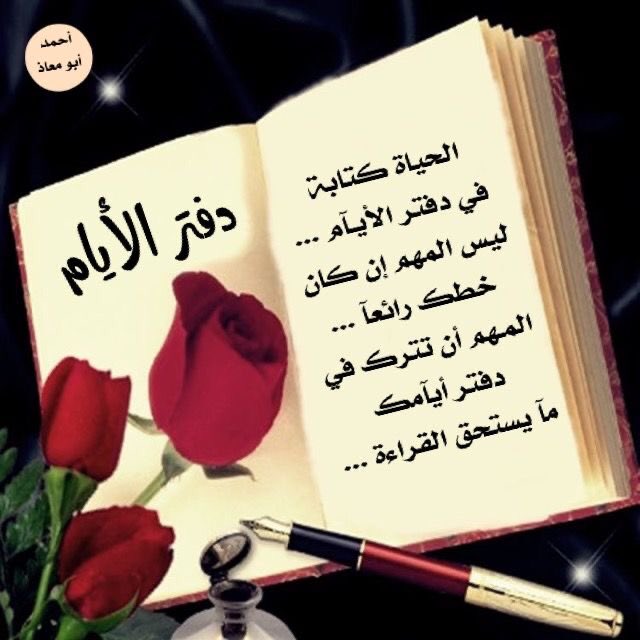 أحمد
أبو معاذ
دفتر الأيام
الحياة كتابة
في دفتر الأيآم ...
ليس المهم إن كان
خطك رائعآ ...
المهم أن تترك في
دفتر أيآمك
مآ يستحق القراءة ...